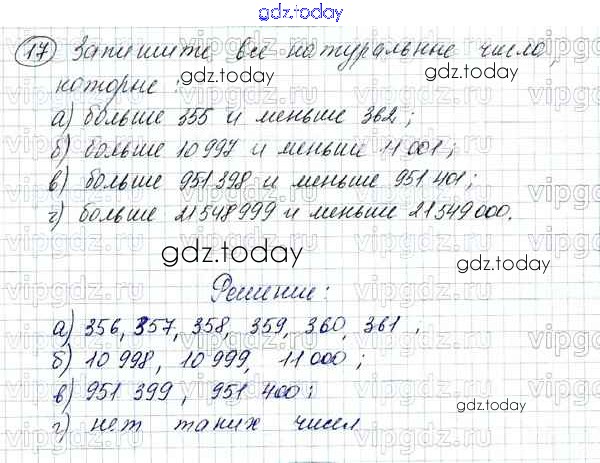 gdz.today
17 Запишите все натуральные числа,
которые :
gdz.today
а) больше 355 и меньше 362;
б) больше 10 997 и меньши 11 001;
в) больше 951 398 и меньше 951 401;
г) больше 21 548 999 и меньше 21 549 000.
gdz.today
gdz.today
Решение:
а) 356, 357, 358, 359, 360, 361 ;
б) 10 998, 10 999, 11 000;
в) 951 399, 951 400;
gdz.today
г) нет таких чисел